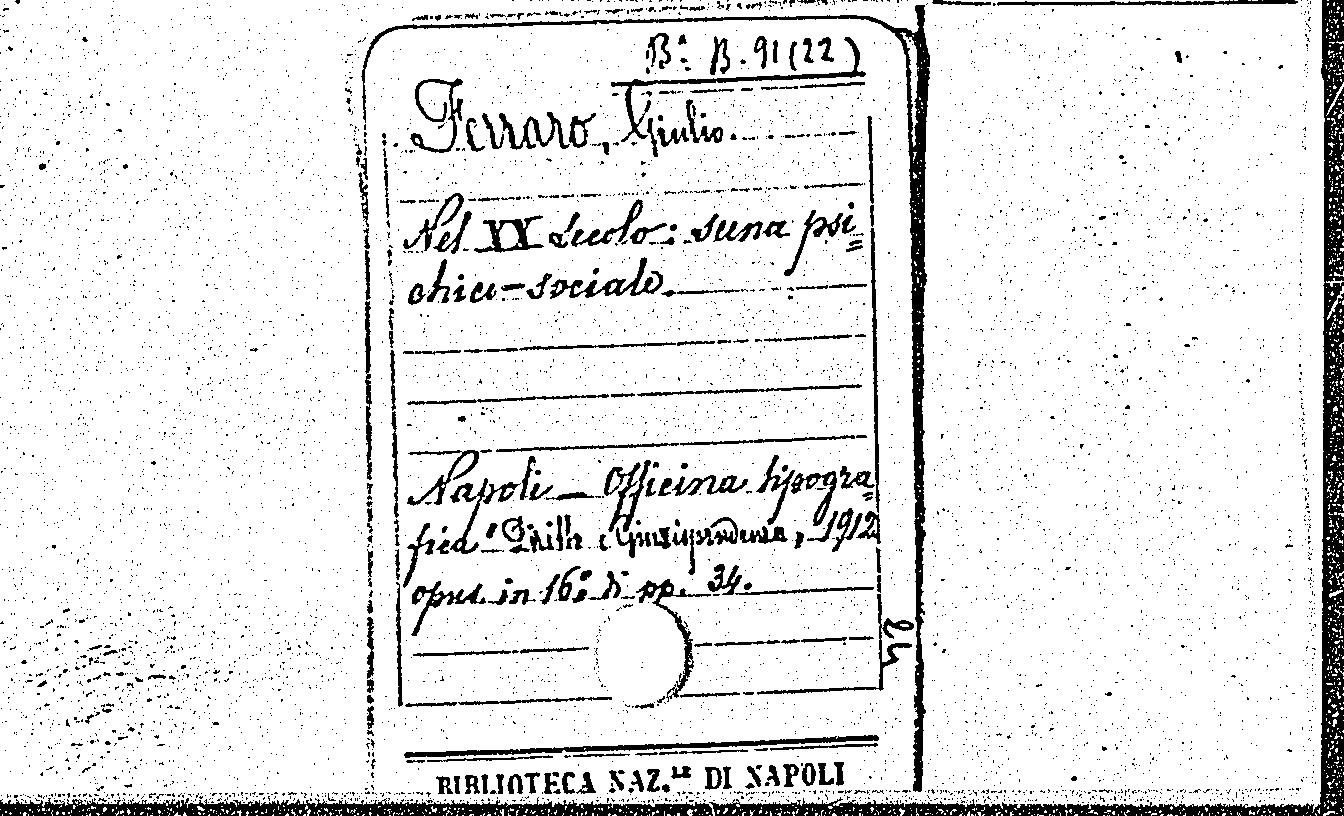 Bª B. 91 (22)
Ferraro, Giulio.
Nel XX secolo: scena psi=
chico-sociale.
Napoli - Officina tipogra=
fica "Diritto e Giurisprudenza, 1912
opus. in 16º di pp. 34.
BIBLIOTECA NAZ.LE DI NAPOLI